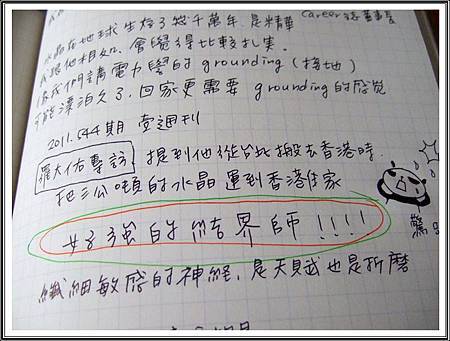 水晶在地球生存了幾千萬年,是精華
我跟他相処,會覺得比較扎実。
像我們講電力學的 grounding (接地)
可能漂泊久了,回家更需要 grounding 的感覚
2011.544期 壹週刊
羅大佑專訪 提到他從台北搬去香港時
把三公噸的水晶運到香港住家
好強的結界師!!!!
驚!!
纖細敏感的神経,是天賦也是折磨